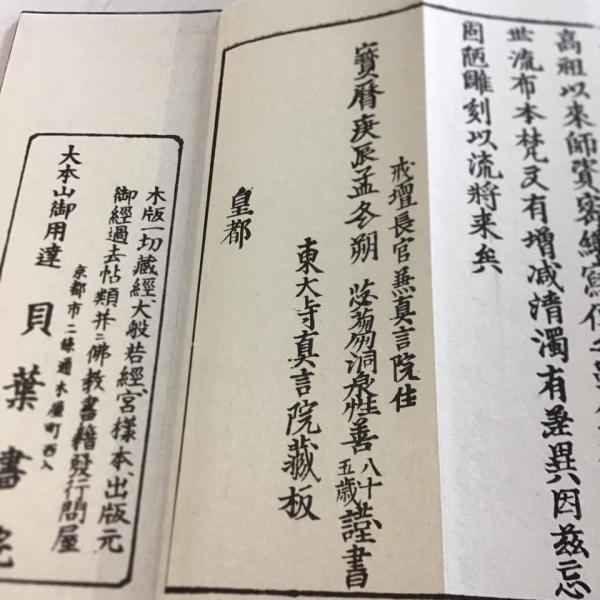 高祖以来師資審繕寫傳
世流布本梵文有増减清濁有差異因茲忘
固陋雕刻以流将来矣
戒壇長官兼真言院住
寶暦庚辰孟冬朔 苾蒭洞泉性善八十五歳謹書
東大寺真言院蔵板
皇都
木版一切蔵経、大般若経、宮様本、出版元
御経過去帖類并ニ佛教書籍發行問屋
京都市二條通木屋町西入
大本山御用達 貝葉書院